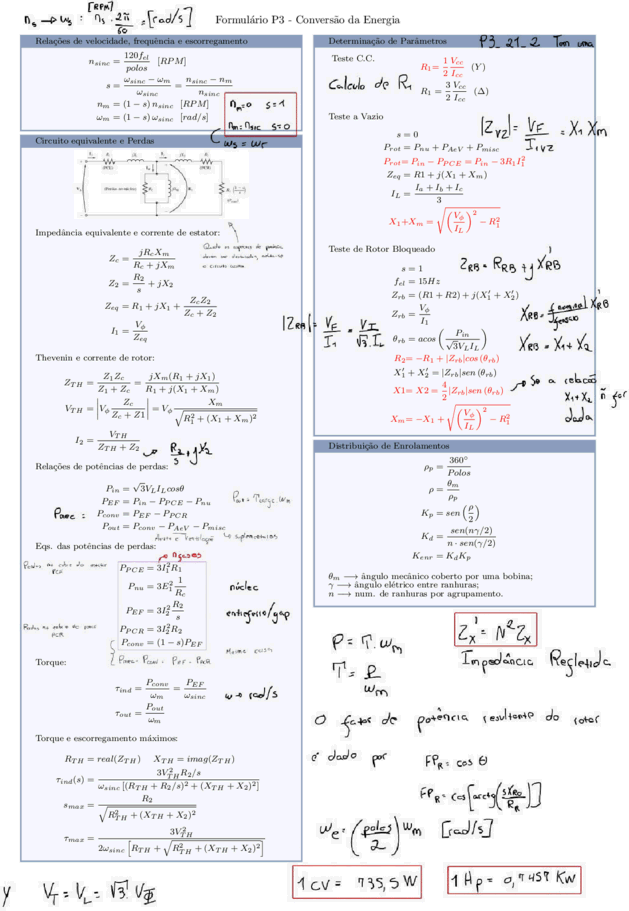 [RPM]
n_s → ω_s : n_s · 2π/60 = [rad/s]
Formulário P3 - Conversão da Energia
Relações de velocidade, frequência e escorregamento
n_sinc = 120f_el / polos [RPM]
s = (ω_sinc − ω_m) / ω_sinc = (n_sinc − n_m) / n_sinc
n_m = (1 − s) n_sinc [RPM]
ω_m = (1 − s) ω_sinc [rad/s]
n_m=0 s=1
n_m=n_sinc s=0
ω_s = ω_r
Circuito equivalente e Perdas
Impedância equivalente e corrente de estator:
Z_c = jR_cX_m / (R_c + jX_m)
Z_2 = R_2/s + jX_2
Z_eq = R_1 + jX_1 + Z_cZ_2 / (Z_c + Z_2)
I_1 = V_ϕ / Z_eq
Thevenin e corrente de rotor:
Z_TH = Z_1Z_c / (Z_1 + Z_c) = jX_m(R_1 + jX_1) / (R_1 + j(X_1 + X_m))
V_TH = |V_ϕ Z_c / (Z_c + Z1)| = V_ϕ X_m / √(R_1² + (X_1 + X_m)²)
I_2 = V_TH / (Z_TH + Z_2) → R_2/s + jX_2
Relações de potências de perdas:
P_in = √3V_LI_Lcosθ
P_EF = P_in − P_PCE − P_nu
P_conv = P_EF − P_PCR
P_out = P_conv − P_AeV − P_misc
Eqs. das potências de perdas:
P_PCE = 3I_1²R_1
P_nu = 3E_1² 1/R_c núcleo
P_EF = 3I_2² R_2/s entreferro/gap
P_PCR = 3I_2²R_2
P_conv = (1 − s)P_EF
Torque:
τ_ind = P_conv / ω_m = P_EF / ω_sinc ω → rad/s
τ_out = P_out / ω_m
Torque e escorregamento máximos:
R_TH = real(Z_TH) X_TH = imag(Z_TH)
τ_ind(s) = 3V_TH²R_2/s / (ω_sinc [(R_TH + R_2/s)² + (X_TH + X_2)²])
s_max = R_2 / √(R_TH² + (X_TH + X_2)²)
τ_max = 3V_TH² / (2ω_sinc [R_TH + √(R_TH² + (X_TH + X_2)²)])
V_T = V_L = √3 · V_Φ
Determinação de Parâmetros P3_21_2 Tem uma
Teste C.C.
Calculo de R_1
R_1 = 1/2 V_cc/I_cc (Y)
R_1 = 3/2 V_cc/I_cc (Δ)
Teste a Vazio
|Z_VZ| = V_F / I_1VZ = X_1 X_m
s = 0
P_rot = P_nu + P_AeV + P_misc
P_rot = P_in − P_PCE = P_in − 3R_1I_1²
Z_eq = R1 + j(X_1 + X_m)
I_L = (I_a + I_b + I_c) / 3
X_1+X_m = √((V_ϕ/I_L)² − R_1²)
Teste de Rotor Bloqueado
Z_RB = R_RB + jX'_RB
s = 1
f_el = 15Hz
Z_rb = (R1 + R2) + j(X_1' + X_2')
Z_rb = V_ϕ / I_1
|Z_RB| = V_F / I_1 = V_T / √3 · I_L
X_RB = X_1 + X_2
θ_rb = acos (P_in / √3V_LI_L)
R_2 = −R_1 + |Z_rb|cos(θ_rb)
X_1' + X_2' = |Z_rb|sen(θ_rb)
X1 = X2 = 4/2 |Z_rb|sen(θ_rb)
X_m = −X_1 + √((V_ϕ/I_L)² − R_1²)
→ So a relacão
X_1+X_2 ñ for
dada
Distribuição de Enrolamentos
ρ_p = 360° / Polos
ρ = θ_m / ρ_p
K_p = sen (ρ/2)
K_d = sen(nγ/2) / (n · sen(γ/2))
K_enr = K_dK_p
θ_m → ângulo mecânico coberto por uma bobina;
γ → ângulo elétrico entre ranhuras;
n → num. de ranhuras por agrupamento.
P = T · ω_m
T = P / ω_m
Z'_x = N² Z_x
Impedância Refletida
O fator de potência resultante do rotor
é dado por FP_R = cos θ
FP_R = cos[arctg(sX_RO / R_R)]
ω_e = (polos/2) ω_m [rad/s]
1 CV = 735,5 W
1 Hp = 0,7457 KW